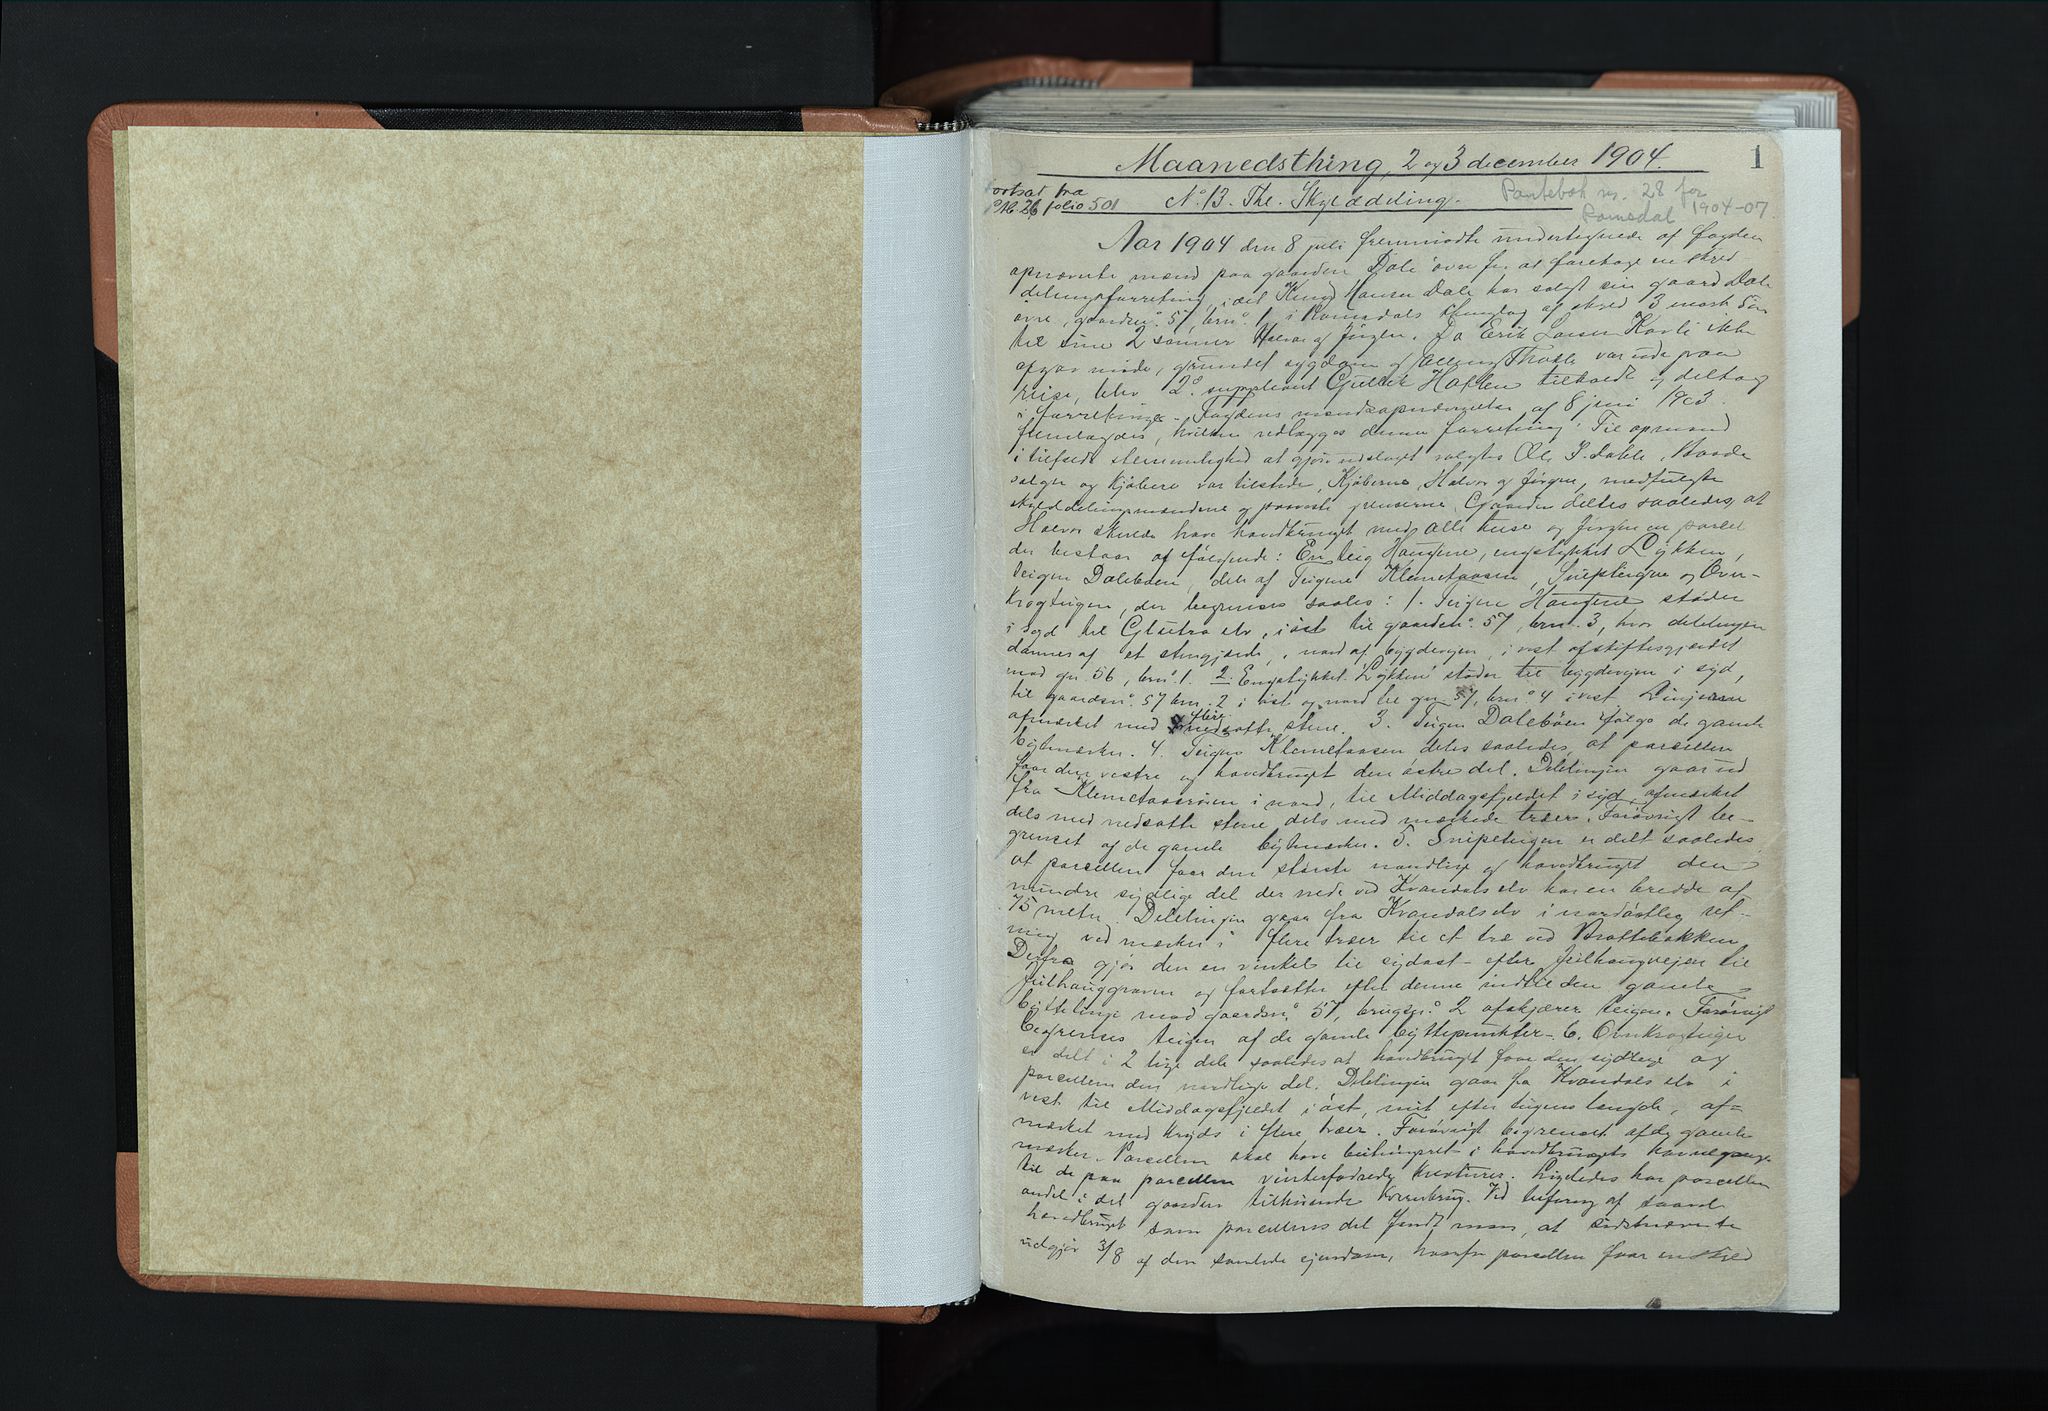 Maanedsthing, 2 og 3 december 1904.
1
fortsat fra
folio 501
No. 13. Thl. Skylddeling.
Pantebok nr. 28 for
Romsdal 1904-07
Aar 1904 den 8 juli fremmødte undertegnede af fogden
opnævnte mænd paa gaarden Dale øvre for at foretage en skyld
delingsforretning, idet Knud Hansen Dale har solgt sin gaard Dale
øvre, gaardsno. 57, brno. 1 i Romsdals thinglag af skyld 3 mark 5 øre
til sine 2 sønner Halvor og Jørgen. Da Erik Larsen Kavli ikke
afgav møde, grundet sygdom og Thokle var ude paa
reise, blev 2o. suppleant Gullik Haflen tilkaldt og deltog
i forretningen. Fogdens mændsopnævnelse af 8 juni 1903
fremlagdes, hvilken vedlægges denne forretning. Til opmand
i tilfælde stemmelighed at gjøre udslaget valgtes Ole Baade
sælger og kjøbere var tilstede. Kjøberne, Halvor og Jørgen, medfulgte
skylddelingsmændene og paaviste grænserne. Gaarden deltes saaledes, at
Halvor skulde have hovedbruget med alle huse og Jørgen en parcel
der bestaar af følgende: En teig Haugene, engstykket Løkken,
teigen Dalebøen, dele af Teigene Klemetaasen, Snipteigen og Ovn-
krogteigen, der begrænses saales: 1. Teigen Haugene støder
i syd til Glutra elv, i øst til gaardsno. 57, brn. 3, hvor delelinjen
dannes af et stengjærde, i nord af bygdevejen, i vest af skiftesgjærdet
mod gn. 56, brno. 1. 2. Engstykket "Løkken" støder til bygdevejen i syd,
til gaardsno. 57 brn. 2 i øst og nord til gn. 57, brno 4 i vest. Linjerne
afmærket med flere nedsatte stene. 3. Teigen Dalebøen følge de gamle
bytmærker. 4. Teigen Klemetaasen deles saaledes, at parcellen
faar den vestre og hovedbruget den østre del. Delelinjen gaar ud
fra Klemetaasrøien i nord, til Middagsfjeldet i syd, afmærket
dels med nedsatte stene dels med mærkede træer. Forøvrigt be-
grænset af de gamle bytmærker. 5. Snipeteigen er delt saaledes,
at parcellen faar den største nordlige og hovedbruget den
mindre sydlige del der nede ved Kvandalselv har en bredde af
75 meter. Delelinjen gaar fra Kvandalselv i nordøstlig ret-
ning ved mærker i flere træer til et træ ved Brattebakken.
Derfra gjør den en vinkel til sydøst - efter veien til
og fortsætter efter denne indtil den gamle
byttelinje mod gaardsno. 57, brugsno. 2 afskjærer teigen. Forøvrigt
begrænses teigen af de gamle byttepunkter. 6. Ovnkrogteigen
er delt i 2 lige dele saaledes at hovedbruget faar den sydlige og
parcellen den nordlige del. Delelinjen gaar fra Kvandals elv i
vest til Middagsfjeldet i øst, mit efter teigens længde, af-
mærket med kryds i flere træer. Forøvrigt begrænset af de gamle
mærker. Parcellen skal have beitningsret i hovedbrugets havnegange
til de paa parcellen vinterfødede kreaturer. Ligeledes har parcellen
andel i det gaarden tilhørende kvernbrug. Ved befaring af saavel
hovedbruget som parcellens del fandt man, at sidstnævnte
udgjør 3/8 af den samlede ejendom, hvorfor parcellen faar en skyld